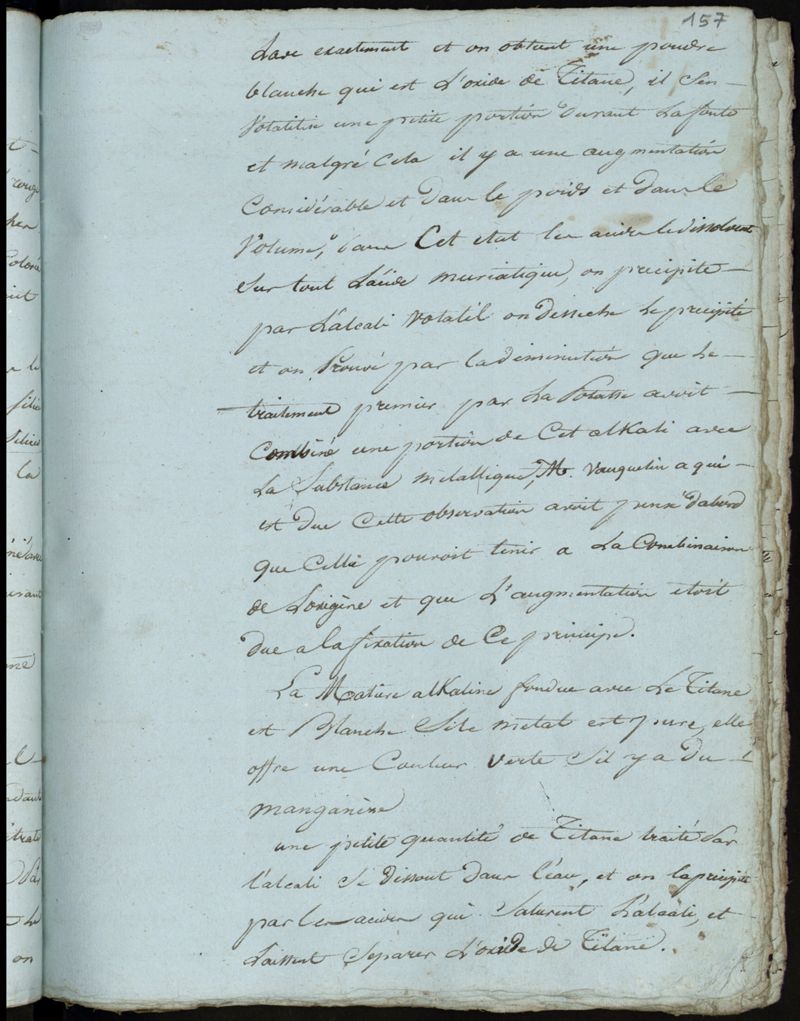 157
Lave exactement et on obtient une poudre
blanche qui est L'oxide de Titane, il S'en
Volatilise une petite portion durant La fonte
et malgré Cela il y a une augmentation
Considérable et Dans le poids et Dans le
Volume, dans Cet etat les acides le dissolvent
Sur tout L'acide muriatique, on precipite
par L'alcali Volatil on desseche Le precipité
et on trouve par la diminution que Le
traitement premier par La Potasse avoit
Combiné une portion de Cet alKali avec
La Substance metallique, M. Vauquelin a qui
est Due Cette observation avoit pensé d'abord
que Celle pouroit tenir a La Combinaison
de L'oxigène et que L'augmentation etoit
Due a la fixation de Ce principe.
La Matière alKaline fondue avec Le Titane
est Blanche Si le metal est pure, elle
offre une Couleur Verte S'il y a du
manganèse
une petite quantité de Titane traité par
l'alcali Se Dissout Dans l'eau, et on la precipite
par les acides qui Saturent L'alcali, et
Laissent Separer L'oxide de Titane.